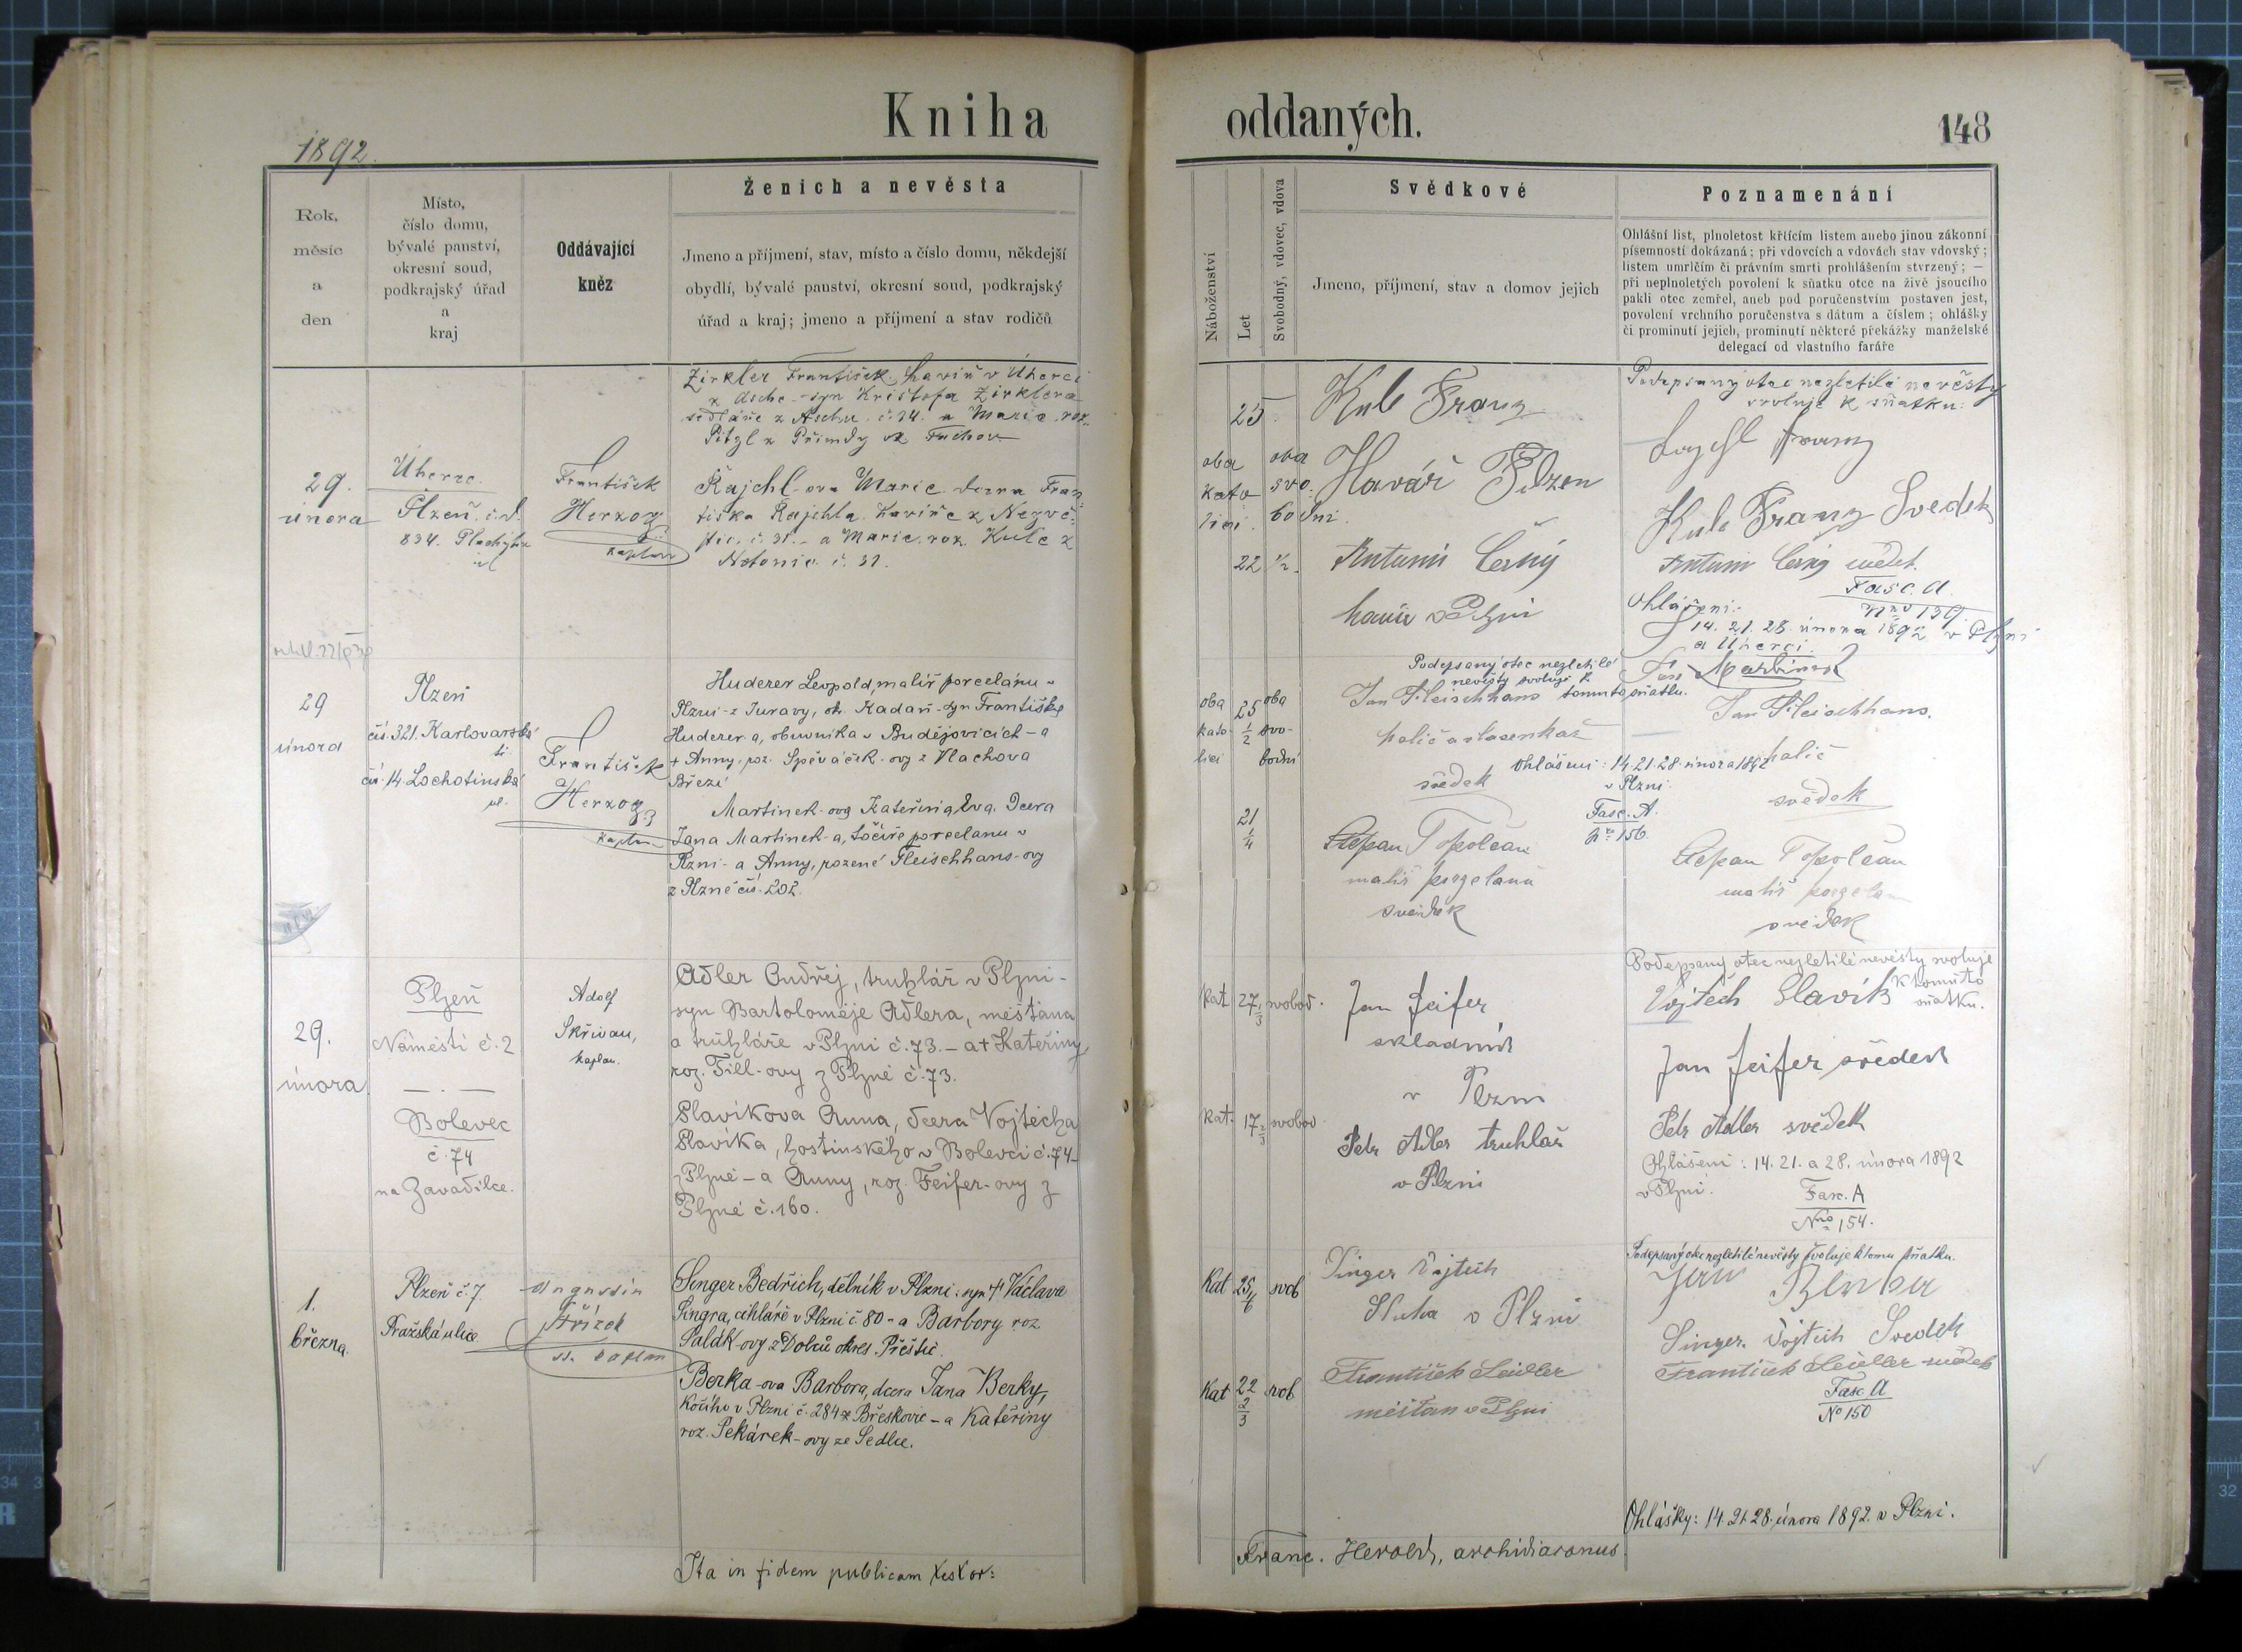 Kniha oddaných.
148
1892.
Rok,
měsíc
a
den
Místo,
číslo domu,
bývalé panství,
okresní soud,
podkrajský úřad
a
kraj
Oddávající
kněz
Ženich a nevěsta
Jmeno a příjmení, stav, místo a číslo domu, někdejší
obydlí, bývalé panství, okresní soud, podkrajský
úřad a kraj; jmeno a příjmení a stav rodičů
Náboženství
Let
Svobodný, vdovec, vdova
Svědkové
Jmeno, příjmení, stav a domov jejich
Poznamenání
Ohlášní list, plnoletost křticím listem anebo jinou zákonní
písemností dokázaná; při vdovcích a vdovách stav vdovský;
listem umrlčím či právním smrti prohlášením stvrzený; —
při neplnoletých povolení k sňatku otce na živě jsoucího
pakli otec zemřel, aneb pod poručenstvím postaven jest,
povolení vrchního poručenstva s dátum a číslem; ohlášky
či prominutí jejich, prominutí některé překážky manželské
delegací od vlastního faráře
29.
února
Úherce.
Plzeň č.d.
834.
František
Herzog
kaplan
Zirkler František, havíř v Úherci
syn Krištofa Zirklera
č. 24. a Marie roz.
Pitzl z Přimdy
Rajchl-ova Marie dcera Fran-
tiška Rajchla havíře z Nezvě-
stic. č. 31. - a Marie, roz. Kule z
č. 31.
oba
kato
lici
25.
22 ½
oba
svo
bodni
Kub Franz
Havíř Pilzen
Antonín Černý
havíř v Plzni
Podepsaný otec nezletilé nevěsty
svoluje k sňatku:
Franz
Kub Franz Svedek
Antonin Černý svědek
Fasc. A
Nro 159.
Ohlášení:
14. 21. 28. února 1892 v Plzni
a Úherci.
29
února
Plzeň
čís. 321. Karlovarská
tř.
čís. 14. Lochotinská
ul.
František
Herzog
kaplan
Huderer Leopold, malíř porcelánu v
Plzni - z Turavy, ok. Kadaň - syn Františka
Huderer-a, obuvníka v Budějovicích - a
+ Anny, roz. Spěváček-ovy z Vlachova
Březí
Martinek-ova Kateřina, Eva. Dcera
Jana Martinek-a, točíře porcelanu v
Plzni - a Anny, rozené Fleischhans-ovy
z Plzně čís. 202.
oba
kato-
lici
25
½
21
¼
oba
svo-
bodní
Podepsaný otec nezletilé
nevěsty svoluje k
tomuto sňatku.
Jan Martinek
Jan Fleischhans
holič a vlasenkář
svědek
Ohlášení: 14. 21. 28. února 1892
v Plzni.
Fasc. A.
Nro 156.
Štěpan Topolčan
malíř porzelanu
svědek
Jan Fleischhans.
holič
svědek
Štěpan Topolčan
malíř porzelan
svědek
29.
února
Plzeň
Náměstí č. 2
Bolevec
č. 74
na Zavadilce.
Adolf
Skřivan,
kaplan.
Adler Ondřej, truhlář v Plzni -
syn Bartoloměje Adlera, měšťana
a truhláře v Plzni č. 73. - a + Kateřiny
roz. Till-ovy z Plzně č. 73.
Slavíkova Anna, dcera Vojtěcha
Slavíka, hostinského v Bolevci č. 74 -
z Plzně - a Anny, roz. Feifer-ovy z
Plzně č. 160.
kat. 27 ⅓ svobod.
kat. 17 ⅔ svobod
Jan Feifer
skladník
v Plzni
Petr Adler truhlář
v Plzni
Podepsaný otec nezletilé nevěsty svoluje
k tomuto
sňatku.
Vojtěch Slavík
Jan Feifer svědek
Petr Adler svědek
Ohlášení: 14. 21. a 28. února 1892
v Plzni.
Fasc. A
Nro 154.
1.
března
Plzeň č. 7.
Pražská ulice
Augustin
Střízek
kaplan
Singer Bedřich, dělník v Plzni: syn + Václava
Singra, cihláře v Plzni č 80 - a Barbory roz
Salák-ovy z Dolců okres. Přeštic.
Berka-ova Barbora, dcera Jana Berky,
kočího v Plzni č. 284 z Břeskovic - a Kateřiny
roz. Pekárek-ovy ze Sedlce.
Kat 25 svob
Kat 22 ⅔ svob
Singer Vojtěch
Sluha v Plzni
František Seidler
měšťan v Plzni
Podepsaný otec nezletilé nevěsty svoluje k tomu sňatku.
Jan Berka
Singer Vojtěch Svedek
František Seidler svědek
Fasc. A
No 150
Ohlášky: 14. 21. 28. února 1892. v Plzni.
Ita in fidem publicam testor:
Franc. Herold, archidiaconus.